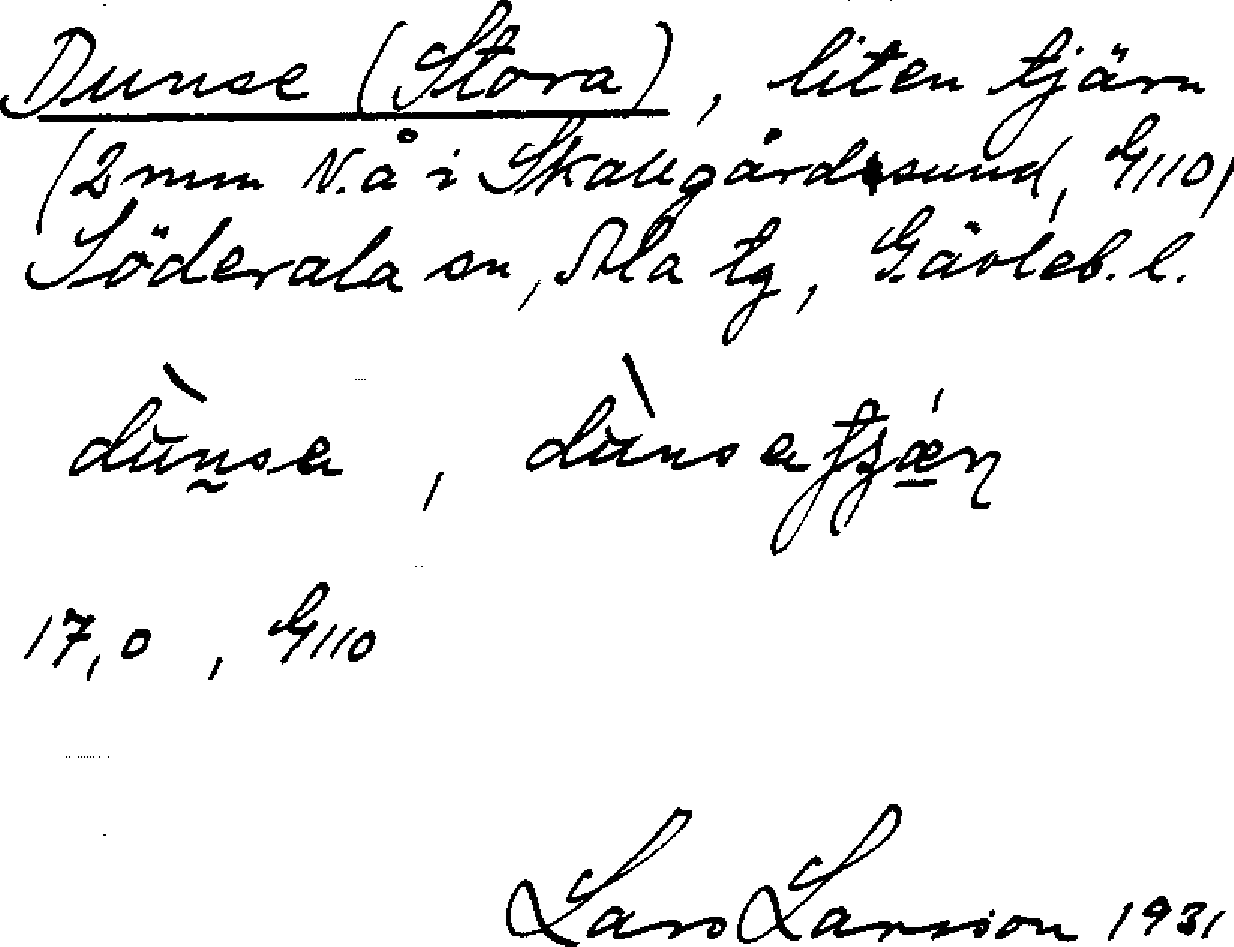 Dunse (Stora), liten tjärn
(2 mm N. å i Skallgårdssund, G110)
Söderala sn, Ala tg, Gävleb. l.
dùnsa, dùnsatjǽn
17,0, G110
Lars Larsson 1931